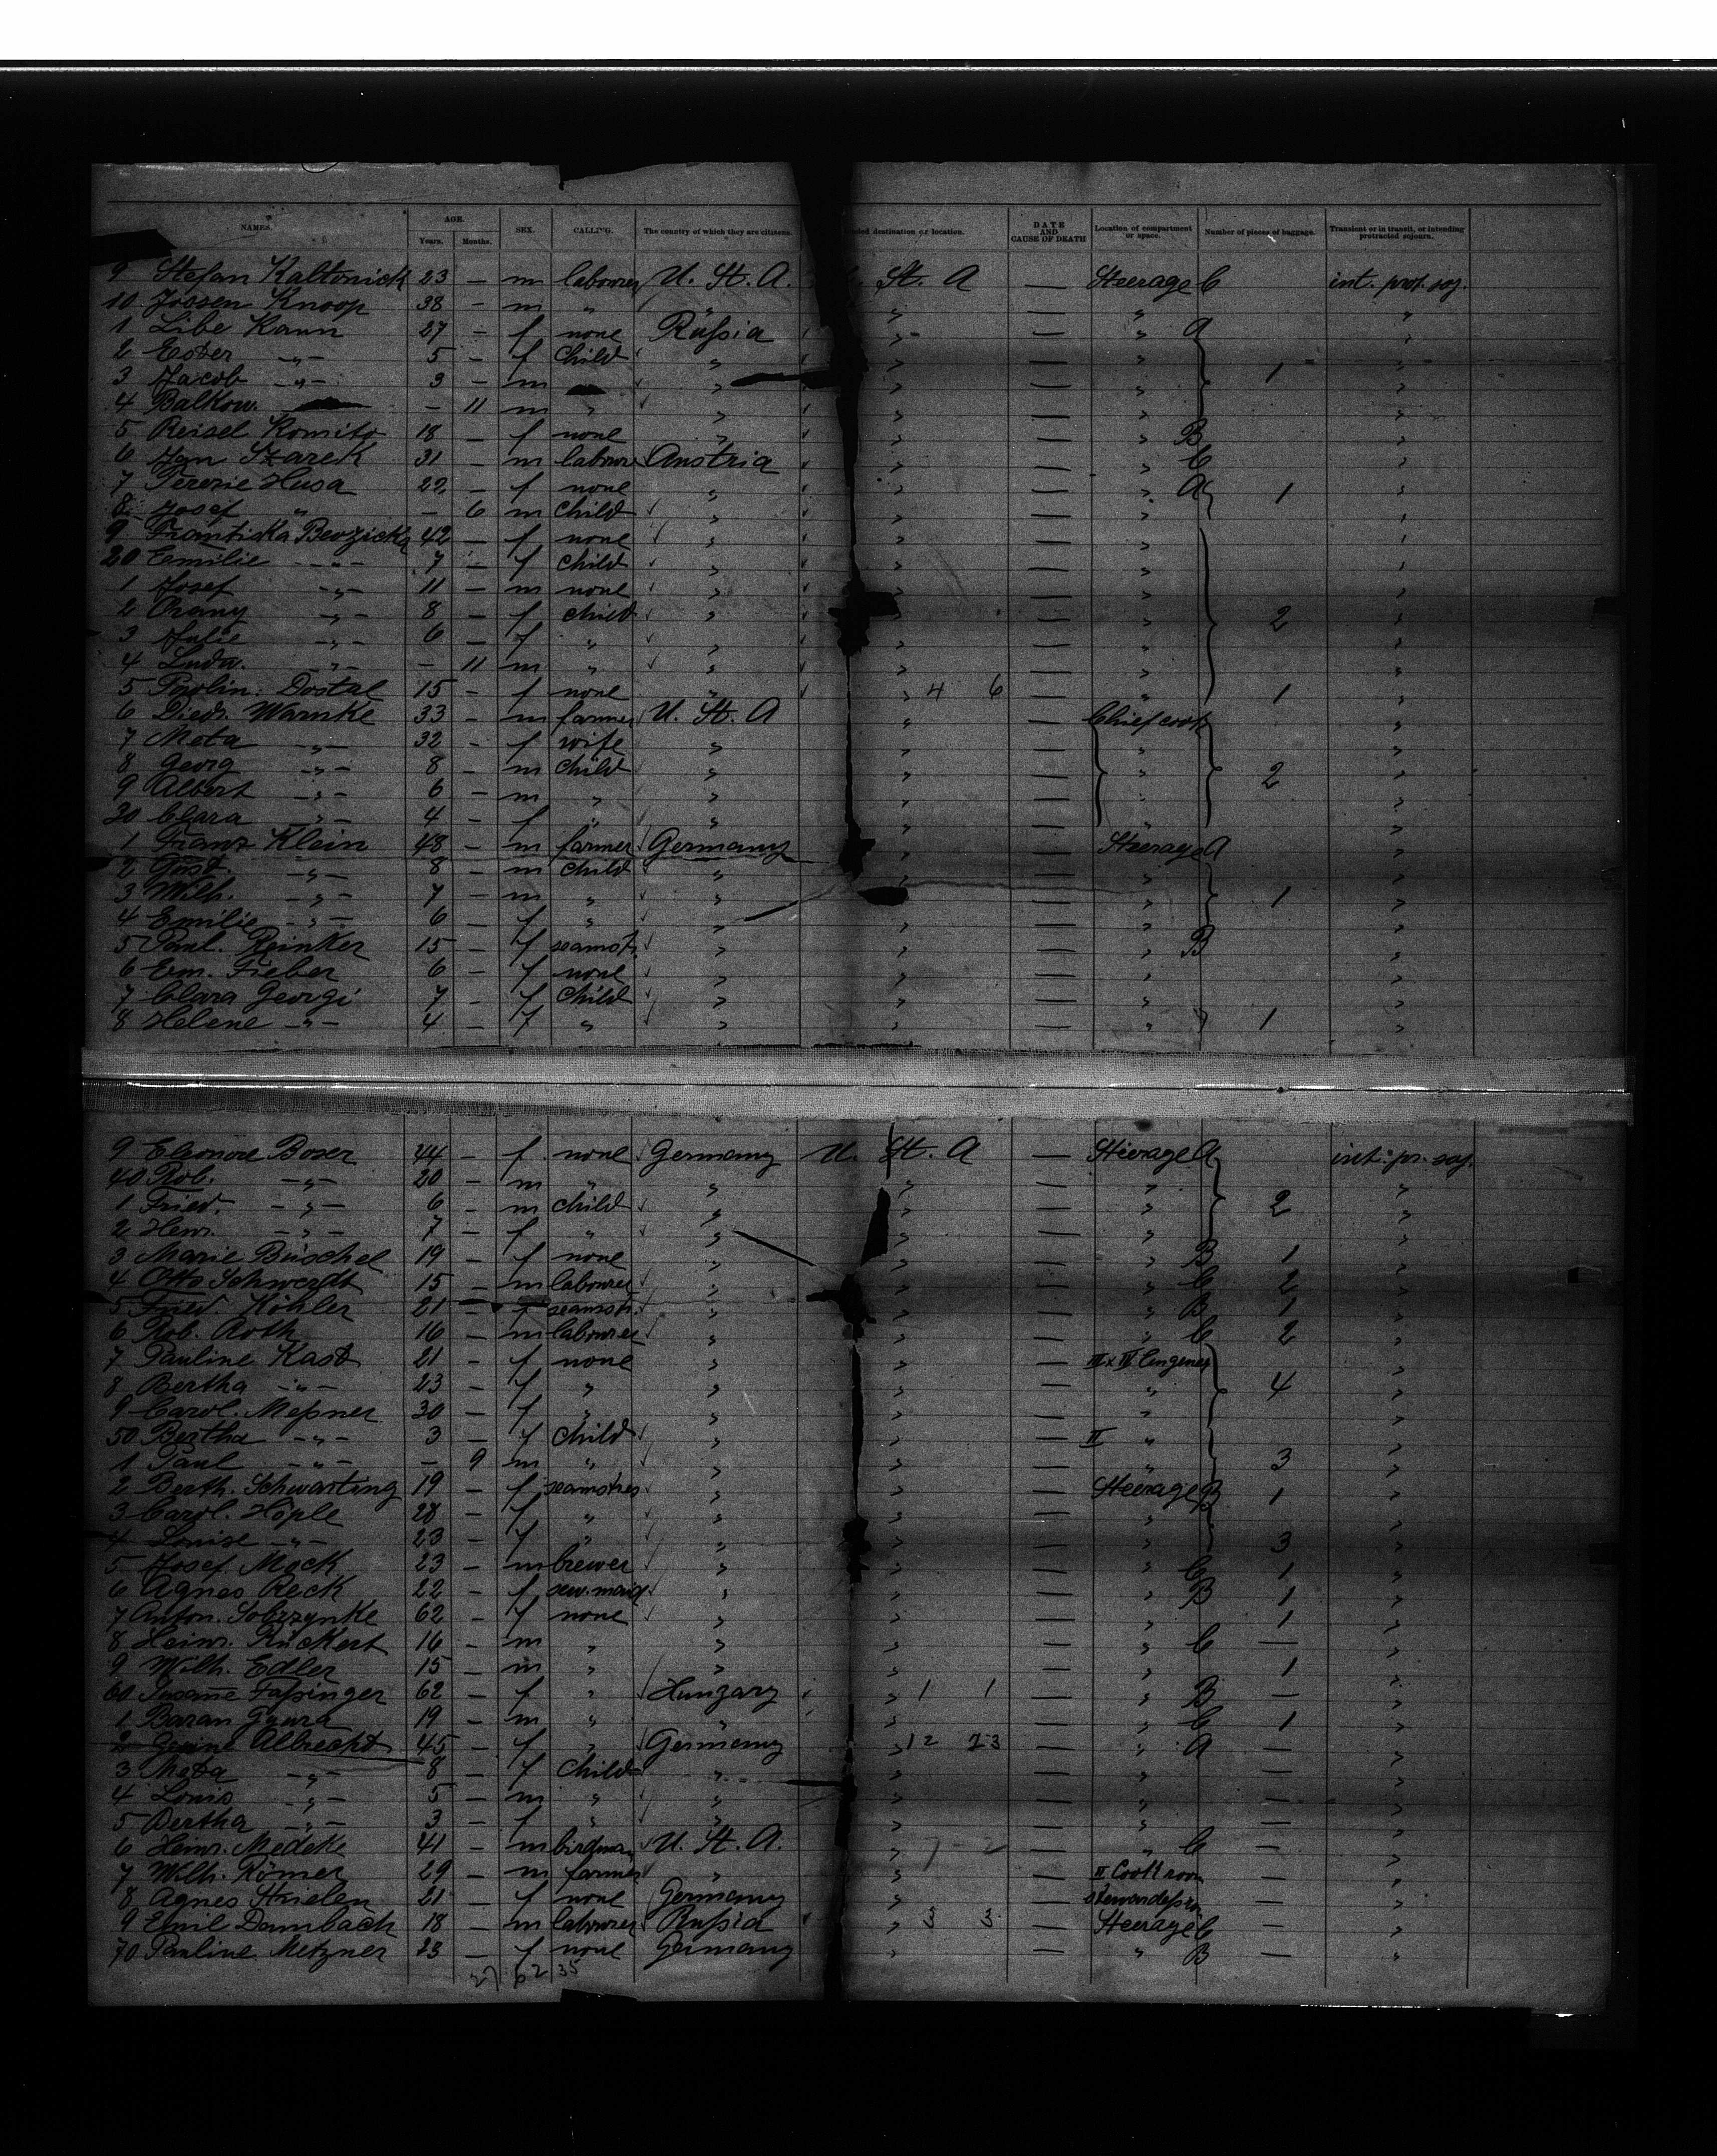 NAMES. AGE. Years. Months. SEX. CALLING. The country of which they are citizens. destination or location. DATE AND CAUSE OF DEATH Location of compartment or space. Number of pieces of baggage. Transient or in transit, or intending protracted sojourn.
9 Stefan Kaltonick 23 — m labourer U. St. A. St. A — Steerage C int. prot. soj.
10 Jossen Knoop 38 — m " " " — " "
1 Libe Kann 27 — f none Rußia " — " A "
2 Ester -"- 5 — f child " " — " "
3 Jacob -"- 3 — m " " — " 1 "
4 Balkow. — 11 m " " " — " "
5 Reisel Komito 18 — f none " " — " B "
6 Jan Szarek 31 — m labourer Austria " — " C "
7 Terezie Husa 22 — f none " " — " A 1 "
8 Josef " — 6 m child " " — " "
9 Frantiska 42 — f none " " — " "
20 Emilie -"- 7 — f child " " — " "
1 Josef -"- 11 — m none " " — " "
2 -"- 8 — f child " " — " 2 "
3 Julie -"- 6 — f " " " — " "
4 Ludw. -"- — 11 m " " " — " "
5 Paulin. Dostal 15 — f none " " 4 6 — " 1 "
6 Diedr. Warnke 33 — m farmer U. St. A " — Chief cook "
7 Meta -"- 32 — f wife " " — " "
8 Georg -"- 8 — m child " " — " 2 "
9 Albert -"- 6 — m " " " — " "
30 Clara -"- 4 — f " " " — " "
1 Franz Klein 48 — m farmer Germany " — Steerage A "
2 Gust. -"- 8 — m child " " — " "
3 Wilh. -"- 7 — m " " " — " 1 "
4 Emilie -"- 6 — f " " " — " "
5 Paul. Reinker 15 — f seamstr. " " — " B "
6 Em. Fieber 6 — f none " " — " "
7 Clara Georgi 7 — f child " " — " "
8 Helene -"- 4 — f " " " — " 1 "
9 Eleonore Boser 44 — f none Germany U. St. A — Steerage A int. pr. soj.
40 Rob. -"- 20 — m " " " — " "
1 Fried. -"- 6 — m child " " — " 2 "
2 Henr. -"- 7 — f " " " — " "
3 Marie Büschel 19 — f none " " — " B 1 "
4 Otto Schwerdt 15 — m labourer " " — " C 2 "
5 Fried. Köhler 21 — f seamstr. " " — " B 1 "
6 Rob. Roth 16 — m labourer " " — " C 2 "
7 Pauline Kast 21 — f none " " — III & IV Engineer "
8 Bertha -"- 23 — f " " " — " 4 "
9 Carol. Meßner 30 — f " " " — " "
50 Bertha -"- 3 — f child " " — II " "
1 Paul -"- — 9 m " " " — " 3 "
2 Berth. Schwarting 19 — f seamstres " " — Steerage B 1 "
3 Carol. Höple 28 — f " " " — " "
4 Louise -"- 23 — f " " " — " 3 "
5 Josef Mock 23 — m brewer " " — " C 1 "
6 Agnes Reck 22 — f serv. maid " " — " B 1 "
7 Anton. 62 — f none " " — " 1 "
8 Heinr. Rückert 16 — m " " " — " C — "
9 Wilh. Edler 15 — m " " " — " 1 "
60 Susanne Faßinger 62 — f " Hungary " 1 1 — " B — "
1 Baran Gyura 19 — m " " " — " C 1 "
2 Albrecht 45 — f " Germany " 12 23 — " A — "
3 Meta -"- 8 — f child " " — " — "
4 Louis -"- 5 — m " " " — " — "
5 Bertha -"- 3 — f " " " — " — "
6 Heinr. Medeke 41 — m U. St. A. " 7 2 — " C — "
7 Wilh. Römer 29 — m farmer " " — II Cook room — "
8 Agnes 21 — f none Germany " — — "
9 Emil Dambach 18 — m labourer Rußia " 3 3 — Steerage C — "
70 Pauline Metzner 23 — f none Germany " — " B — "
27 62 35